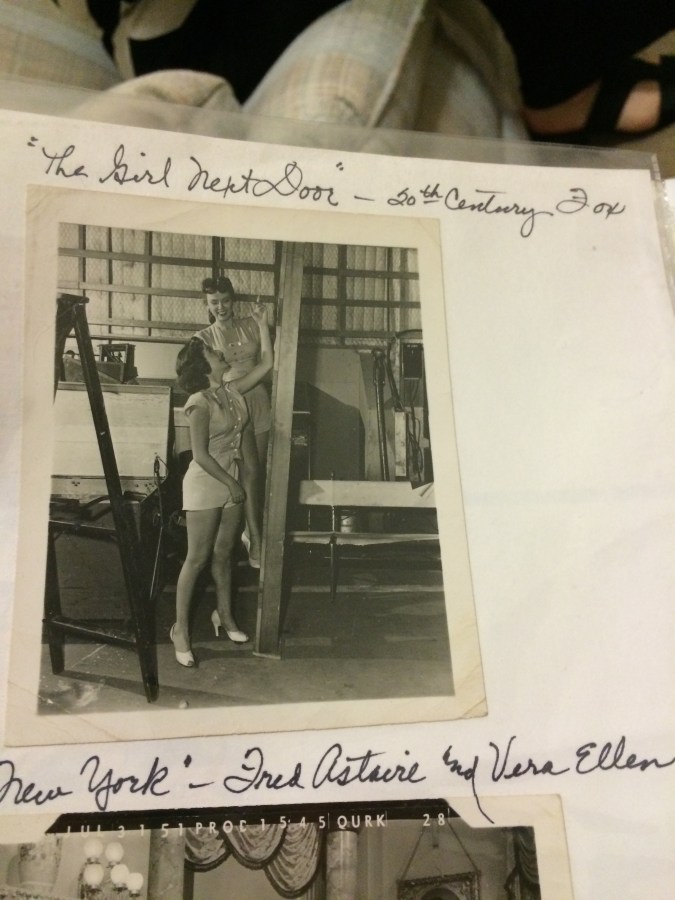 "The Girl Next Door" - 20th Century Fox
New York" - Fred Astaire and Vera Ellen
JUL 31 51 PROD 1545 QURK 28